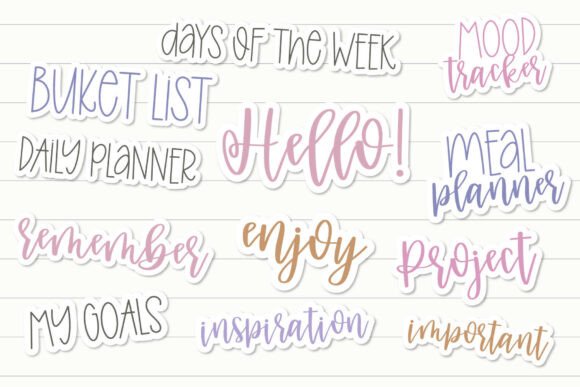 days of the week
MOOD
tracker
BUKET LIST
Hello!
DAILY PLANNER
MEAL
planner
remember
enjoy
project
MY GOALS
inspiration
important